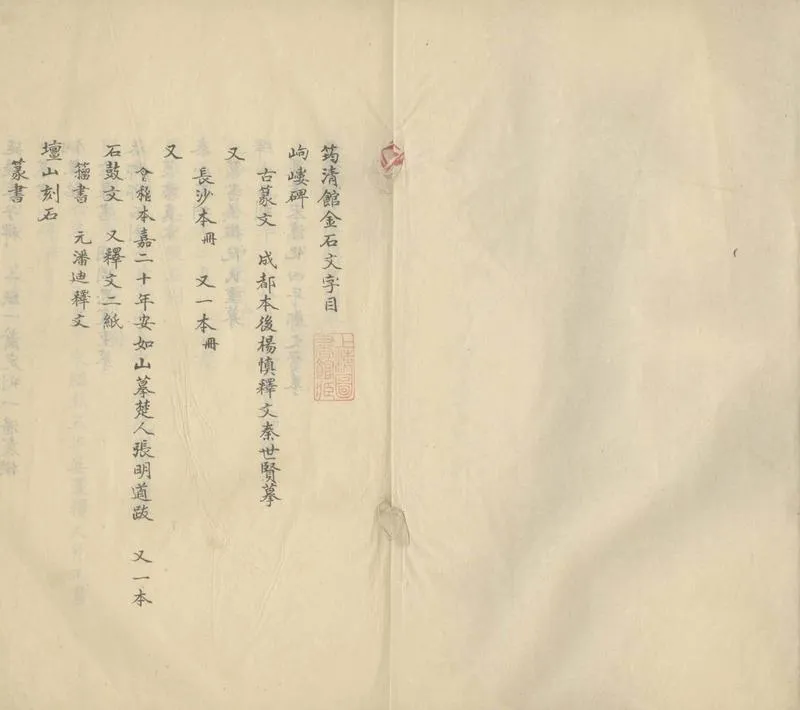 筠清館金石文字目
岣嶁碑
古篆文 成都本後楊慎釋文秦世賢摹
又
長沙本冊 又一本冊
又
會稽本嘉二十年安如山摹楚人張明道跋 又一本
石鼓文 又釋文二紙
籀書 元潘迪釋文
壇山刻石
篆書
上海圖書館藏